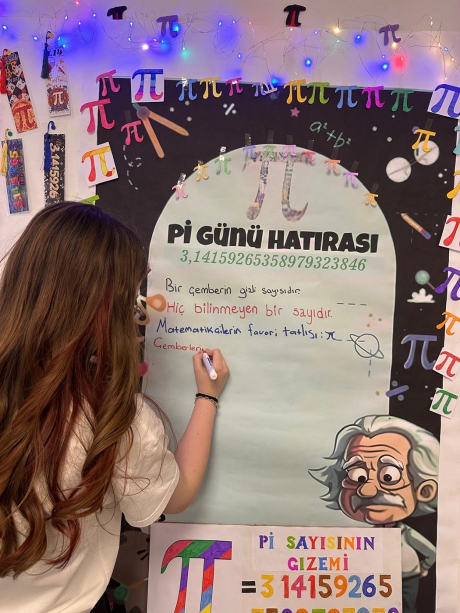 a²+b²
3.1415926
Pİ GÜNÜ HATIRASI
3,14159265358979323846
Bir çemberin gizli sayısıdır.
Hiç bilinmeyen bir sayıdır.
Matematikçilerin favori tatlısı: π
Çemberlerin
Pİ SAYISININ
GİZEMİ
π = 3 14159265